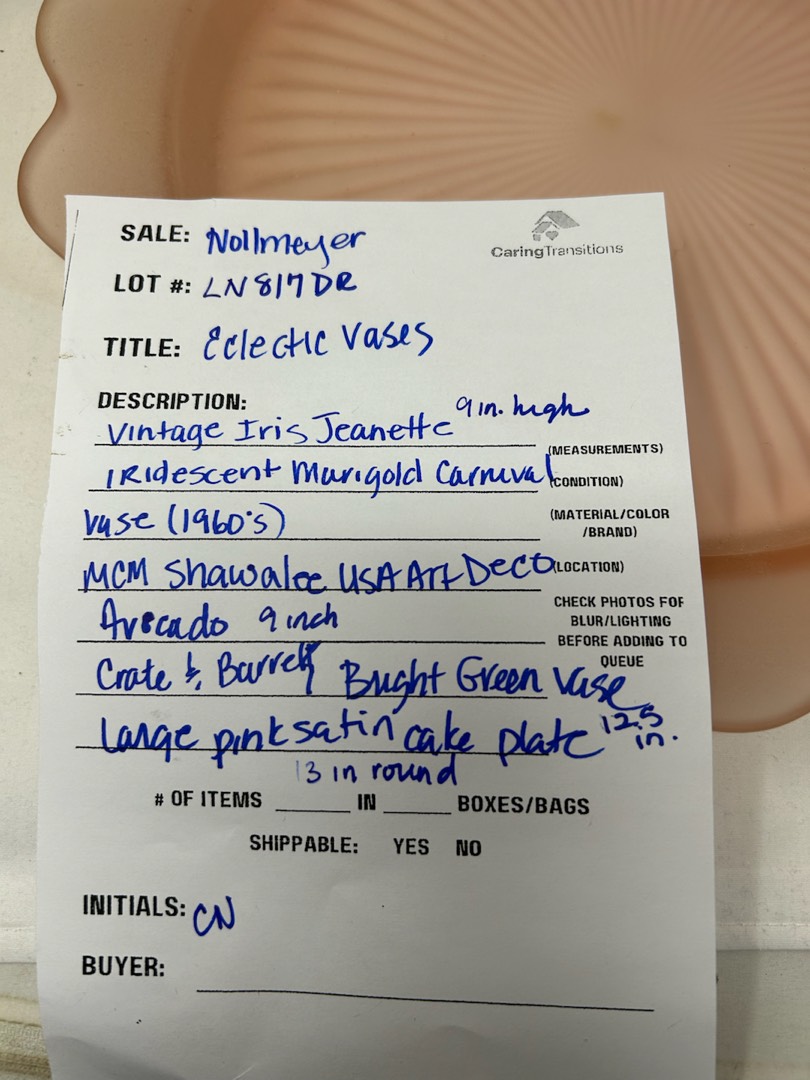 SALE: Nollmeyer
CaringTransitions
LOT #: LN817DR
TITLE: Eclectic Vases
DESCRIPTION:
Vintage Iris Jeanette 9 in. high
(MEASUREMENTS)
IRidescent Marigold Carnival
(CONDITION)
Vase (1960's)
(MATERIAL/COLOR
/BRAND)
MCM Shawalee USA Art Deco
(LOCATION)
Avocado 9 inch
CHECK PHOTOS FOR
BLUR/LIGHTING
BEFORE ADDING TO
QUEUE
Crate & Barrell Bright Green Vase
Large pink satin cake plate 12.5
in.
13 in round
# OF ITEMS ______ IN ______ BOXES/BAGS
SHIPPABLE: YES NO
INITIALS: CN
BUYER: